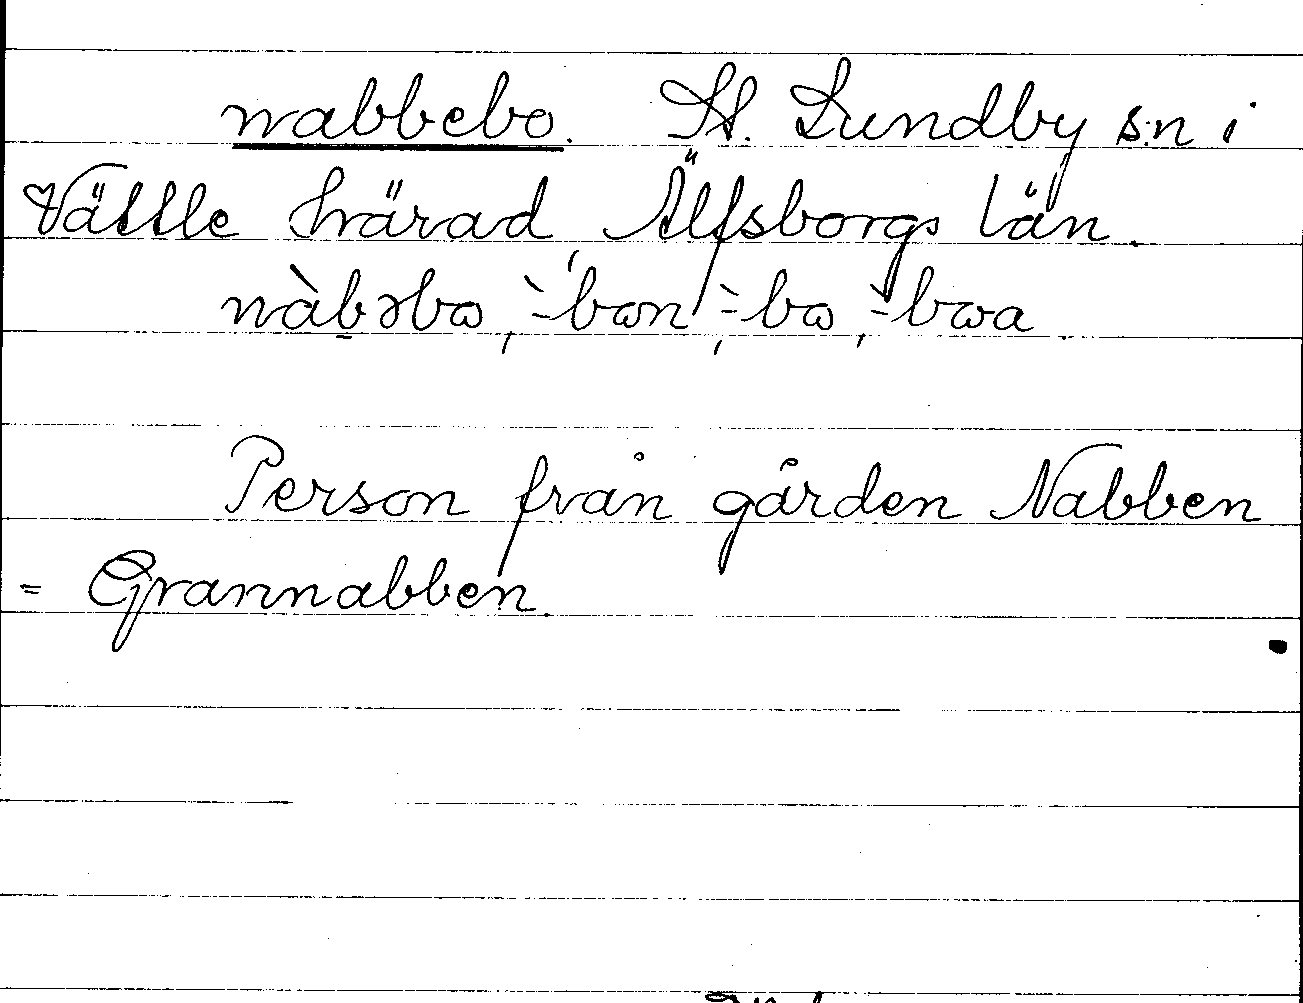 nabbebo. St. Lundby s:n i
Vättle härad, Älfsborgs län.
nàb̠əbɷ, ̀-bɷn, ̀-bɷ, ̀-bɷa
Person från gården Nabben
= Grannabben.